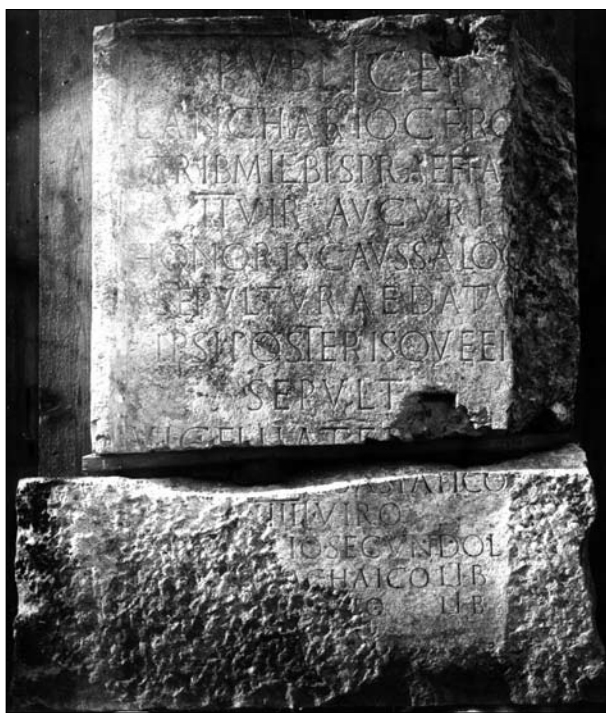 PVBLICE
ANCHARIO C F RO
TRIB MIL BIS PRAEF FA
VIR AVGVRI
HONORIS CAVSSA LOC
SEPVLTVRAE DATV
IPSI POSTERISQVE EI
SEPVLT
VIGELLIA T F
ASIATICO
IIIIVIRO
IO SECVNDO L
ACHAICO LIB
LO LIB